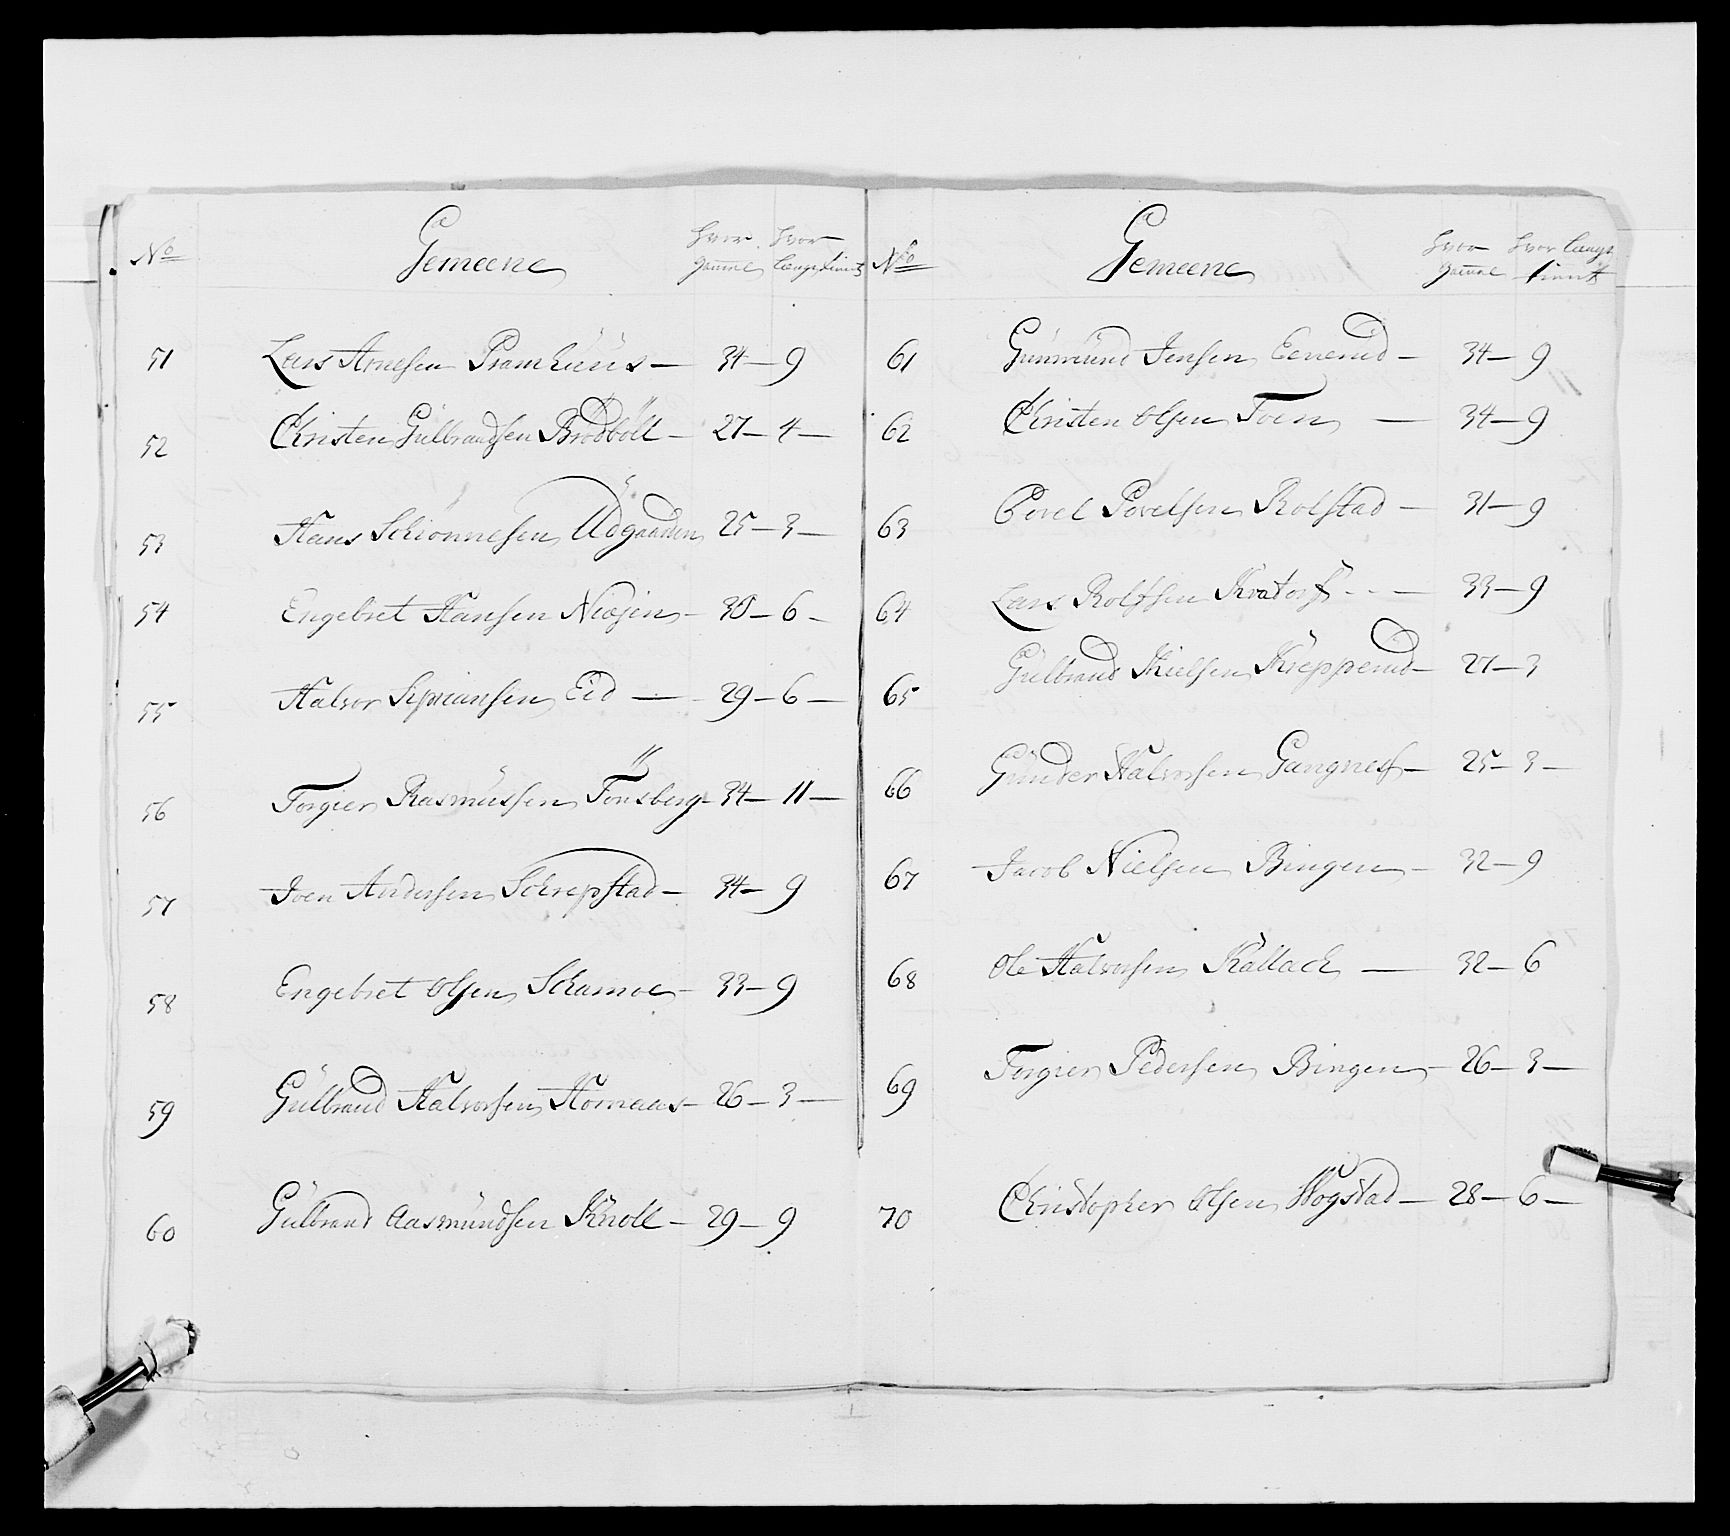 No Gemeene hvor gamml hvor lange tient
51 Lars Arnesen Pramhüüs — 34 — 9
52 Christen Gülbrandsen Brödböll — 27 — 4 —
53 Hans Schiönnesen Üdgaarden 25 — 3 —
54 Engebret Hansen Niosien — 30 — 6 —
55 Halvor Sipriansen Eid — 29 — 6 —
56 Torgier Rasmüssen Tönsberg — 34 — 11 —
57 Joen Andersen Schrepstad — 34 — 9
58 Engebret Olsen Schamoe — 33 — 9
59 Gülbrand Halvorsen Hornaas — 26 — 3 —
60 Gülbrand Aasmündsen Knoll — 29 — 9
No Gemeene hvor gamml hvor længe tient
61 Günmünd Jensen Eenerud — 34 — 9
62 Christen Olsen Toen — 34 — 9
63 Povel Povelsen Rolstad — 31 — 9
64 Lars Rolfsen Kratorf — 33 — 9
65 Gülbrand Kielsen Krepperud — 27 — 3
66 Günder Halvorsen Gangnes — 25 — 3 —
67 Jacob Nielsen Bingen — 32 — 9
68 Ole Halvorsen Kallach — 32 — 6
69 Torgier Pedersen Bingen — 26 — 3 —
70 Christopher Olsen Hogstad — 28 — 6 —